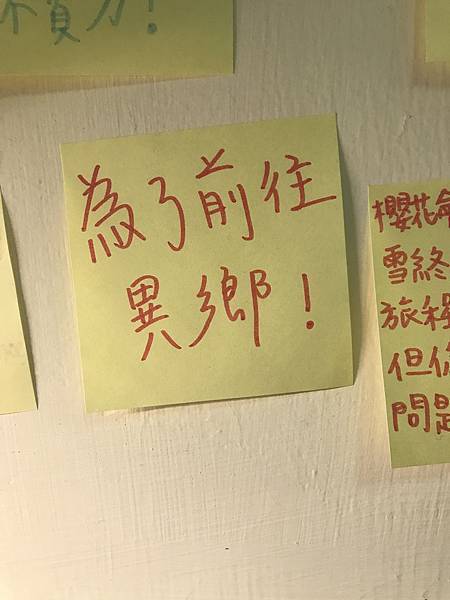 不費力!
為了前往
異鄉!
櫻花
雪終
旅程
但你
問題